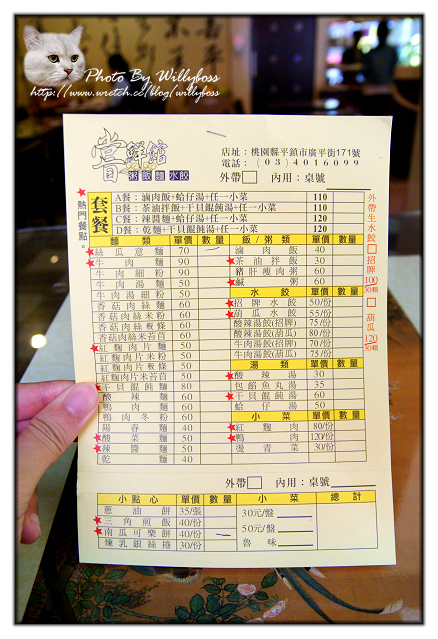 Photo By Willyboss
http://www.wretch.cc/blog/willyboss
嘗鮮館
粥飯麵水餃
店址：桃園縣平鎮市廣平街171號
電話：(03)4016099
外帶 內用：桌號
熱門餐點。
套餐
A餐：滷肉飯+蛤仔湯+任一小菜 110
B餐：茶油拌飯+干貝餛飩湯+任一小菜 110
C餐：辣醬麵+蛤仔湯+任一小菜 120
D餐：乾麵+干貝餛飩湯+任一小菜 120
麵類 單價 數量
絲瓜意麵 70
牛肉麵 90
牛肉細粉 90
牛肉湯麵 50
牛肉湯細粉 50
香菇肉絲麵 60
香菇肉絲米粉 60
香菇肉絲粄條 60
香菇肉絲米苔目 60
紅麴肉片麵 50
紅麴肉片米粉 50
紅麴肉片粄條 50
紅麴肉片米苔目 50
干貝餛飩麵 80
酸辣麵 60
鴨肉麵 60
鴨肉冬粉 60
陽春麵 40
酸菜麵 50
辣醬麵 50
乾麵 40
飯/粥類 單價 數量
滷肉飯 40
茶油拌飯 30
豬肝瘦肉粥 60
鹹粥 60
水餃 單價 數量
招牌水餃 50/份
胡瓜水餃 55/份
酸辣湯餃(招牌) 75/份
酸辣湯餃(胡瓜) 80/份
牛肉湯餃(招牌) 70/份
牛肉湯餃(胡瓜) 75/份
湯類 單價 數量
酸辣湯 30
包餡魚丸湯 35
干貝餛飩湯 60
蛤仔湯 50
小菜 單價 數量
紅麴肉 80/份
鴨肉 120/份
燙青菜 30/份
外帶生水餃
招牌 100 30顆
胡瓜 120 30顆
外帶 內用：桌號
小點心 單價 數量
蔥油餅 35/張
三角煎飯 40/份
南瓜可樂餅 40/份
煉乳銀絲捲 30/份
小菜 總計
30元/盤
50元/盤
魯味